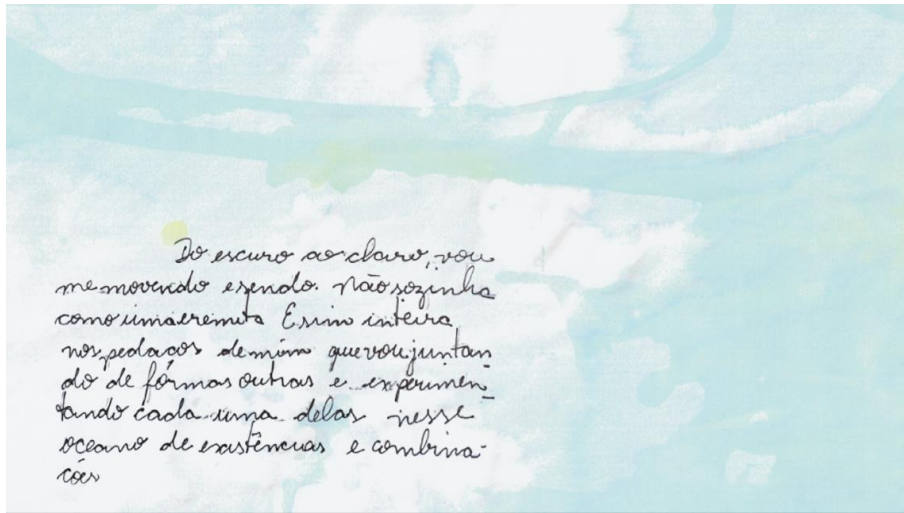 Do escuro ao claro, vou
me movendo e sendo. Não sozinha
como uma eremita E sim inteira
nos pedaços de mim que vou juntan
do de fórmas outras e experimen-
tando cada uma delas nesse
oceano de existências e combina-
ções